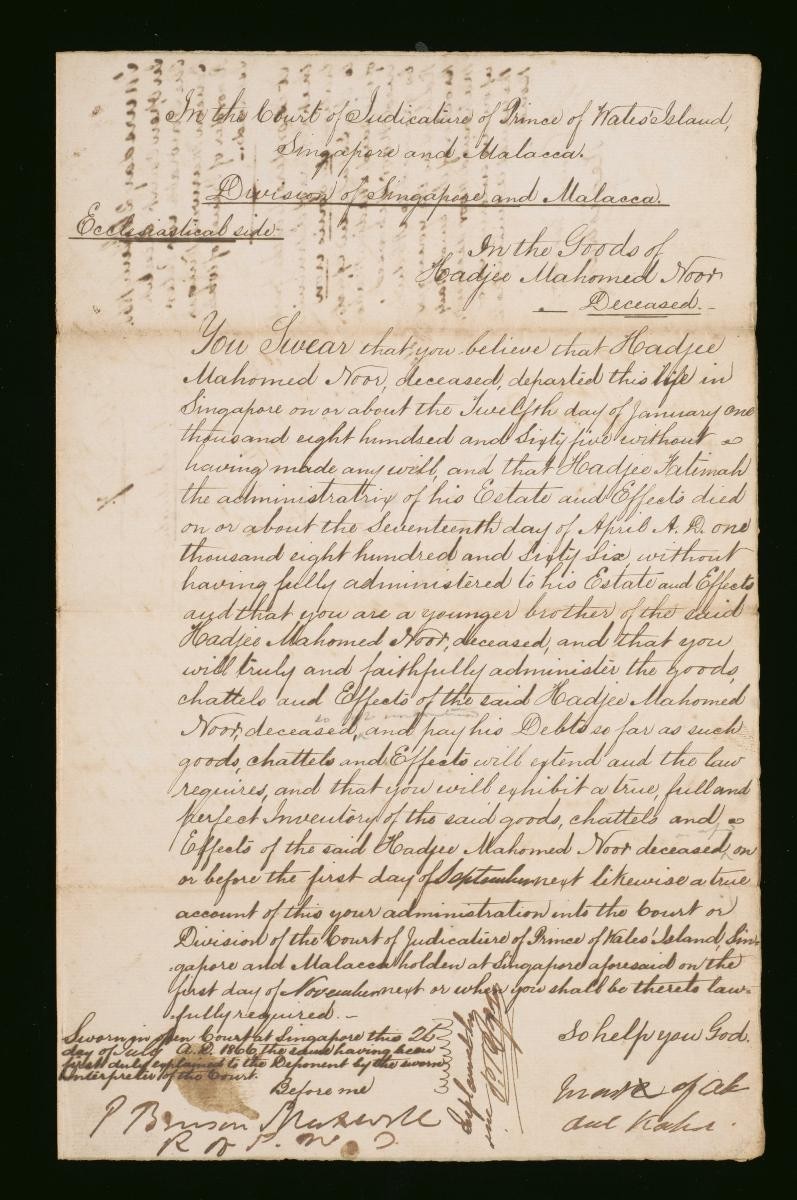 In the Court of Judicature of Prince of Wales' Island,
Singapore and Malacca.
Division of Singapore and Malacca.
Ecclesiastical side
In the Goods of
Hadjee Mahomed Noor
Deceased.
You Swear that you believe that Hadjee
Mahomed Noor, deceased, departed this life in
Singapore on or about the Twelfth day of January one
thousand eight hundred and Sixty five without
having made any will and that Hadjee Fatimah
the administratrix of his Estate and Effects died
on or about the Seventeenth day of April A. D. one
thousand eight hundred and Sixty Six, without
having fully administered to his Estate and Effects
and that you are a younger brother of the said
Hadjee Mahomed Noor, deceased, and that you
will truly and faithfully administer the goods,
chattels and Effects of the said Hadjee Mahomed
Noor, deceased, and pay his Debts so far as such
goods, chattels and Effects will extend and the law
requires, and that you will exhibit a true, full and
perfect Inventory of the said goods, chattels and
Effects of the said Hadjee Mahomed Noor deceased, on
or before the first day of September next likewise a true
account of this your administration into the Court or
Division of the Court of Judicature of Prince of Wales' Island, Sin-
gapore and Malacca holden at Singapore aforesaid on the
first day of November next or when you shall be thereto law-
fully required.
So help you God.
Sworn in open Court at Singapore this
day of July A.D. 1866, the same having been
first duly explained to the Deponent by the sworn
interpreter of the Court.
Before me
P Benson Maxwell
R of P. W. I.
Explained by
me
mark of Ab
dul Kader.